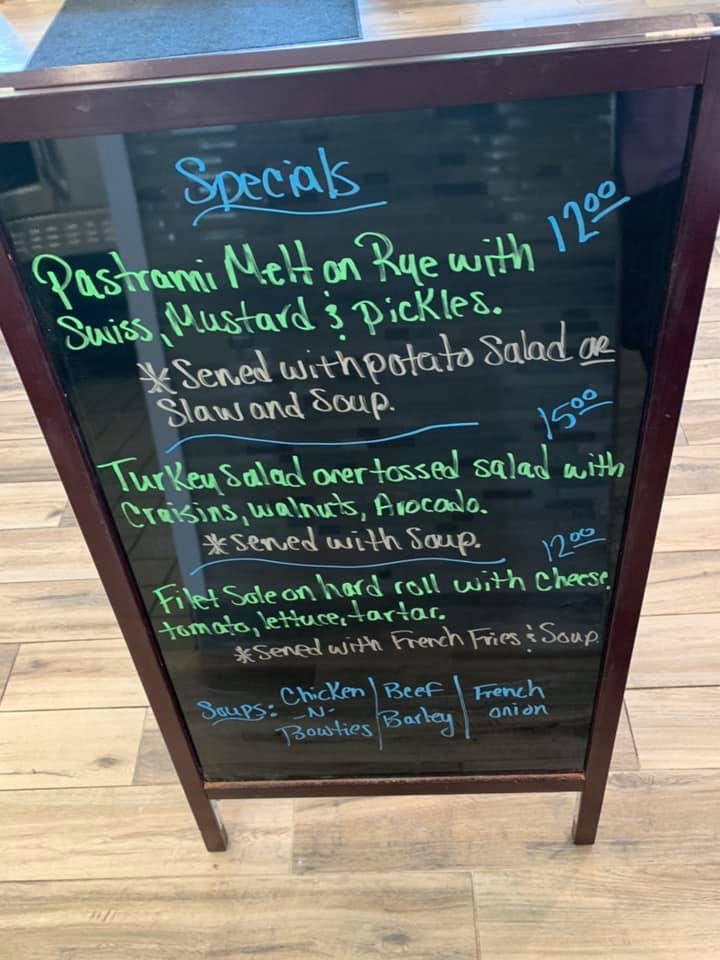 Specials
12.00
Pastrami Melt on Rye with
Swiss, Mustard & Pickles.
*Served with potato Salad OR
Slaw and Soup.
15.00
Turkey Salad over tossed salad with
Craisins, walnuts, Avocado.
*Served with Soup.
12.00
Filet Sole on hard roll with cheese,
tomato, lettuce, tartar.
*Served with French Fries & Soup
Soups: Chicken | Beef | French
-N- Barley onion
Bowties